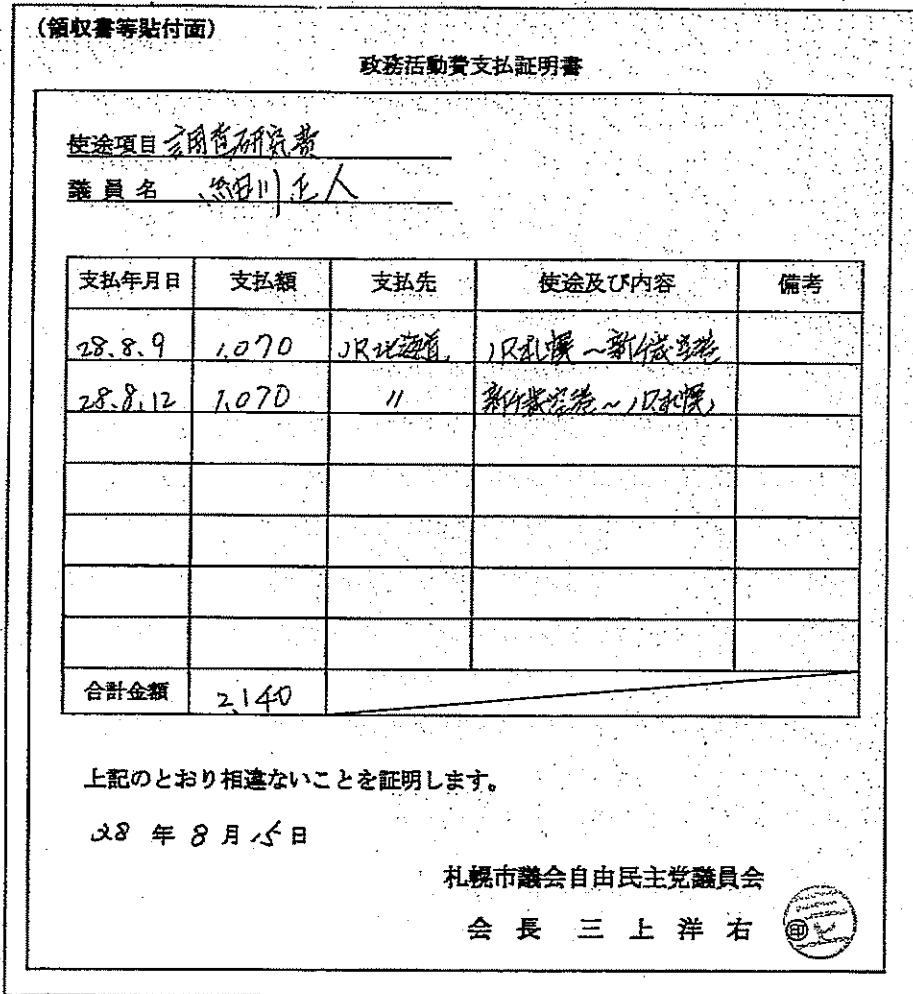 (領収書等貼付面)
政務活動費支払証明書
使途項目 調査研究費
議員名 細川正人
支払年月日 支払額 支払先 使途及び内容 備考
28.8.9 1,070 JR北海道 JR札幌~新千歳空港
28.8.12 1,070 〃 新千歳空港~JR札幌
合計金額 2,140
上記のとおり相違ないことを証明します。
28 年 8 月 15 日
札幌市議会自由民主党議員会
会長 三上洋右 ㊞